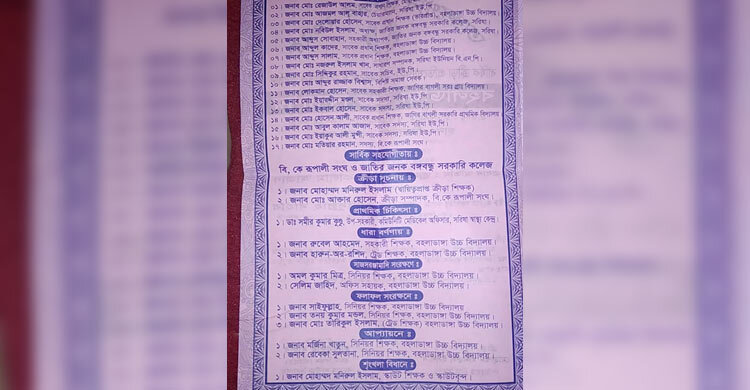 ০১। জনাব মোঃ রেজাউল আলম, সাবেক প্রধান শিক্ষক,
০২। জনাব মোঃ আজমল আল বাহার, চেয়ারম্যান, সরিষা ইউ.পি।
০৩। জনাব মোঃ দেলোয়ার হোসেন, প্রধান শিক্ষক (ভারপ্রাপ্ত), বহলাডাঙ্গা উচ্চ বিদ্যালয়।
০৪। জনাব মোঃ নবিউল ইসলাম, অধ্যক্ষ, জাতির জনক বঙ্গবন্ধু সরকারি কলেজ, সরিষা।
০৫। জনাব আব্দুস সোবাহান, সহকারী অধ্যাপক, জাতির জনক বঙ্গবন্ধু সরকারি কলেজ, সরিষা।
০৬। জনাব আব্দুল কাদের, সাবেক প্রধান শিক্ষক, বহলাডাঙ্গা উচ্চ বিদ্যালয়।
০৭। জনাব আব্দুস সালাম, সাবেক প্রধান শিক্ষক, বহলাডাঙ্গা উচ্চ বিদ্যালয়।
০৮। জনাব মোঃ নজরুল ইসলাম খান, সাধারণ সম্পাদক, সরিষা ইউনিয়ন বি.এন.পি।
০৯। জনাব মোঃ সিদ্দিকুর রহমান, সাবেক সচিব, ইউ.পি।
১০। জনাব মোঃ আব্দুর রাজ্জাক বিশ্বাস, বিশিষ্ট সমাজ সেবক।
১১। জনাব লোকমান হোসেন, সাবেক সহকারী শিক্ষক, জাগির বাগলী সরঃ প্রাঃ বিদ্যালয়।
১২। জনাব মোঃ ইয়ারুদ্দীন মন্ডল, সাবেক সদস্য, সরিষা ইউ.পি।
১৩। জনাব মোঃ ইকবাল হোসেন, সাবেক সদস্য, সরিষা ইউ.পি।
১৪। জনাব মোঃ হোসেন আলী, সাবেক প্রধান শিক্ষক, জাগির বাগলী সরকারি প্রাথমিক বিদ্যালয়
১৫। জনাব মোঃ আবুল কালাম আজাদ, সাবেক সদস্য, সরিষা ইউ.পি।
১৬। জনাব মোঃ ইয়াকুব আলী মুন্সী, সাবেক সদস্য, সরিষা ইউ.পি।
১৭। জনাব মোঃ মতিয়ার রহমান, সদস্য, বি.কে রূপালী সংঘ।
সার্বিক সহযোগীতায় ঃ
বি, কে রূপালী সংঘ ও জাতির জনক বঙ্গবন্ধু সরকারি কলেজ
ক্রীড়া সূচনায় ঃ
১। জনাব মোহাম্মদ মনিরুল ইসলাম (দ্বায়িত্বপ্রাপ্ত ক্রীড়া শিক্ষক)
২। জনাব মোঃ আক্তার হোসেন, ক্রীড়া সম্পাদক, বি.কে রূপালী সংঘ।
প্রাথমিক চিকিৎসা ঃ
১। ডাঃ সমীর কুমার কুন্ডু, উপ-সহকারী, কমিউনিটি মেডিকেল অফিসার, সরিষা স্বাস্থ্য কেন্দ্র।
ধারা বর্ণণায় ঃ
১। জনাব রুবেল আহমেদ, সহকারী শিক্ষক, বহলাডাঙ্গা উচ্চ বিদ্যালয়।
২। জনাব হারুন-অর-রশিদ, ট্রেড শিক্ষক, বহলাডাঙ্গা উচ্চ বিদ্যালয়।
সাজসরঞ্জামাদি সংরক্ষণে ঃ
১। অমল কুমার মিত্র, সিনিয়র শিক্ষক, বহলাডাঙ্গা উচ্চ বিদ্যালয়।
২। সেলিম জাহিদ, অফিস সহায়ক, বহলাডাঙ্গা উচ্চ বিদ্যালয়।
ফলাফল সংরক্ষনে ঃ
১। জনাব সাইফুল্লাহ, সিনিয়র শিক্ষক, বহলাডাঙ্গা উচ্চ বিদ্যালয়
২। জনাব তনয় কুমার মন্ডল, সিনিয়র শিক্ষক, বহলাডাঙ্গা উচ্চ বিদ্যালয়।
৩। জনাব মোঃ তারিকুল ইসলাম, (ট্রেড শিক্ষক) বহলাডাঙ্গা উচ্চ বিদ্যালয়।
আপ্যায়নে ঃ
১। জনাব মর্জিনা খাতুন, সিনিয়র শিক্ষক, বহলাডাঙ্গা উচ্চ বিদ্যালয়।
২। জনাব রেবেকা সুলতানা, সিনিয়র শিক্ষক, বহলাডাঙ্গা উচ্চ বিদ্যালয়।
শৃংখলা বিধানে ঃ
১। জনাব মোহাম্মদ মনিরুল ইসলাম, স্কাউট শিক্ষক ও স্কাউটবৃন্দ।